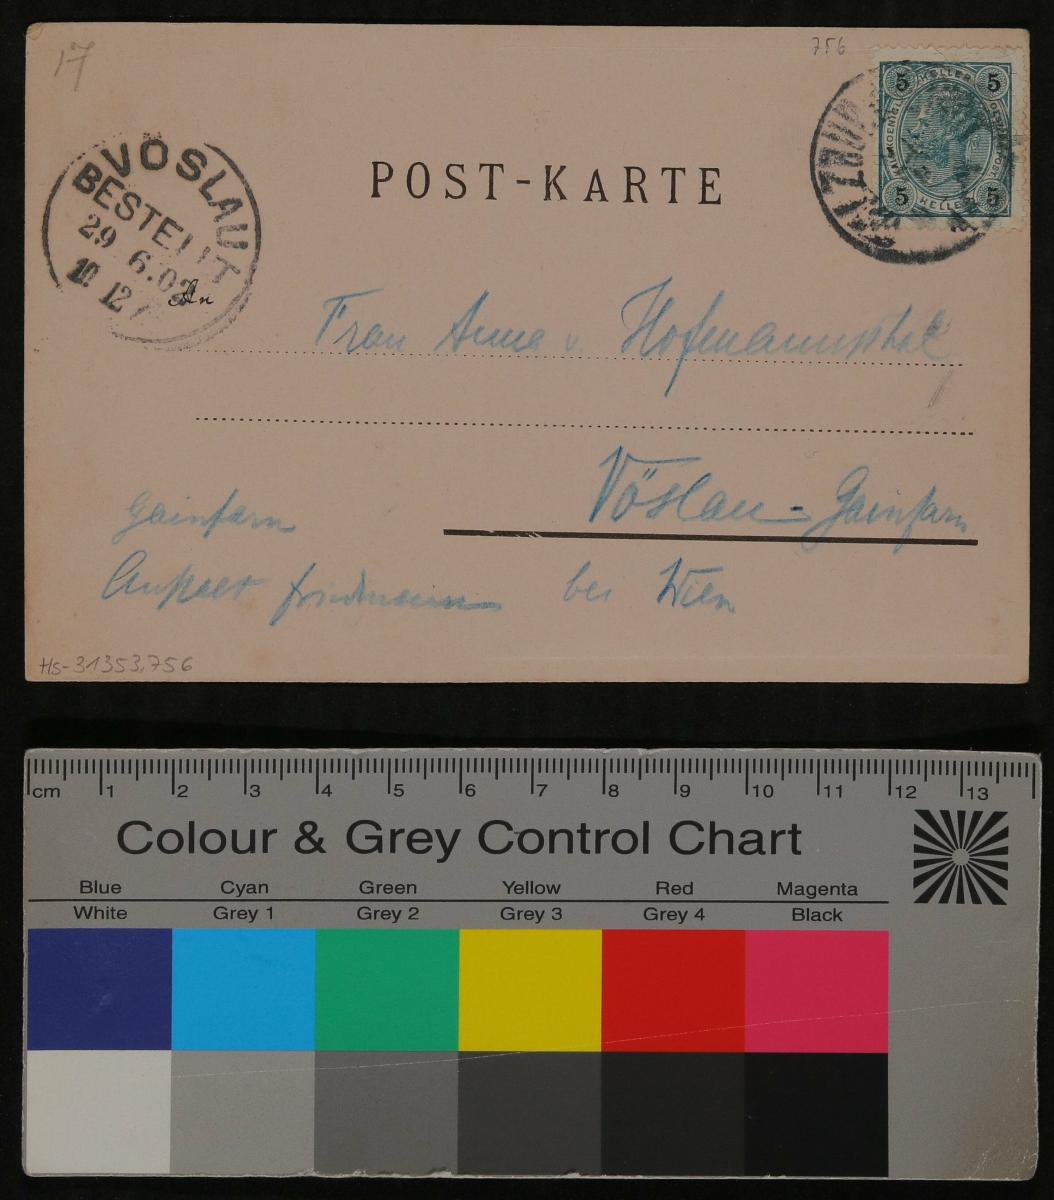 17
756
5 HELLER 5
5 HELLER 5
VÖSLAU
BESTELLT
29 6.02
10 12
POST-KARTE
An
Frau Anna v. Hofmannsthal
Vöslau-Gainfarn
bei Wien
Gainfarn
Hs-31353,756
cm 1 2 3 4 5 6 7 8 9 10 11 12 13
Colour & Grey Control Chart
Blue Cyan Green Yellow Red Magenta
White Grey 1 Grey 2 Grey 3 Grey 4 Black